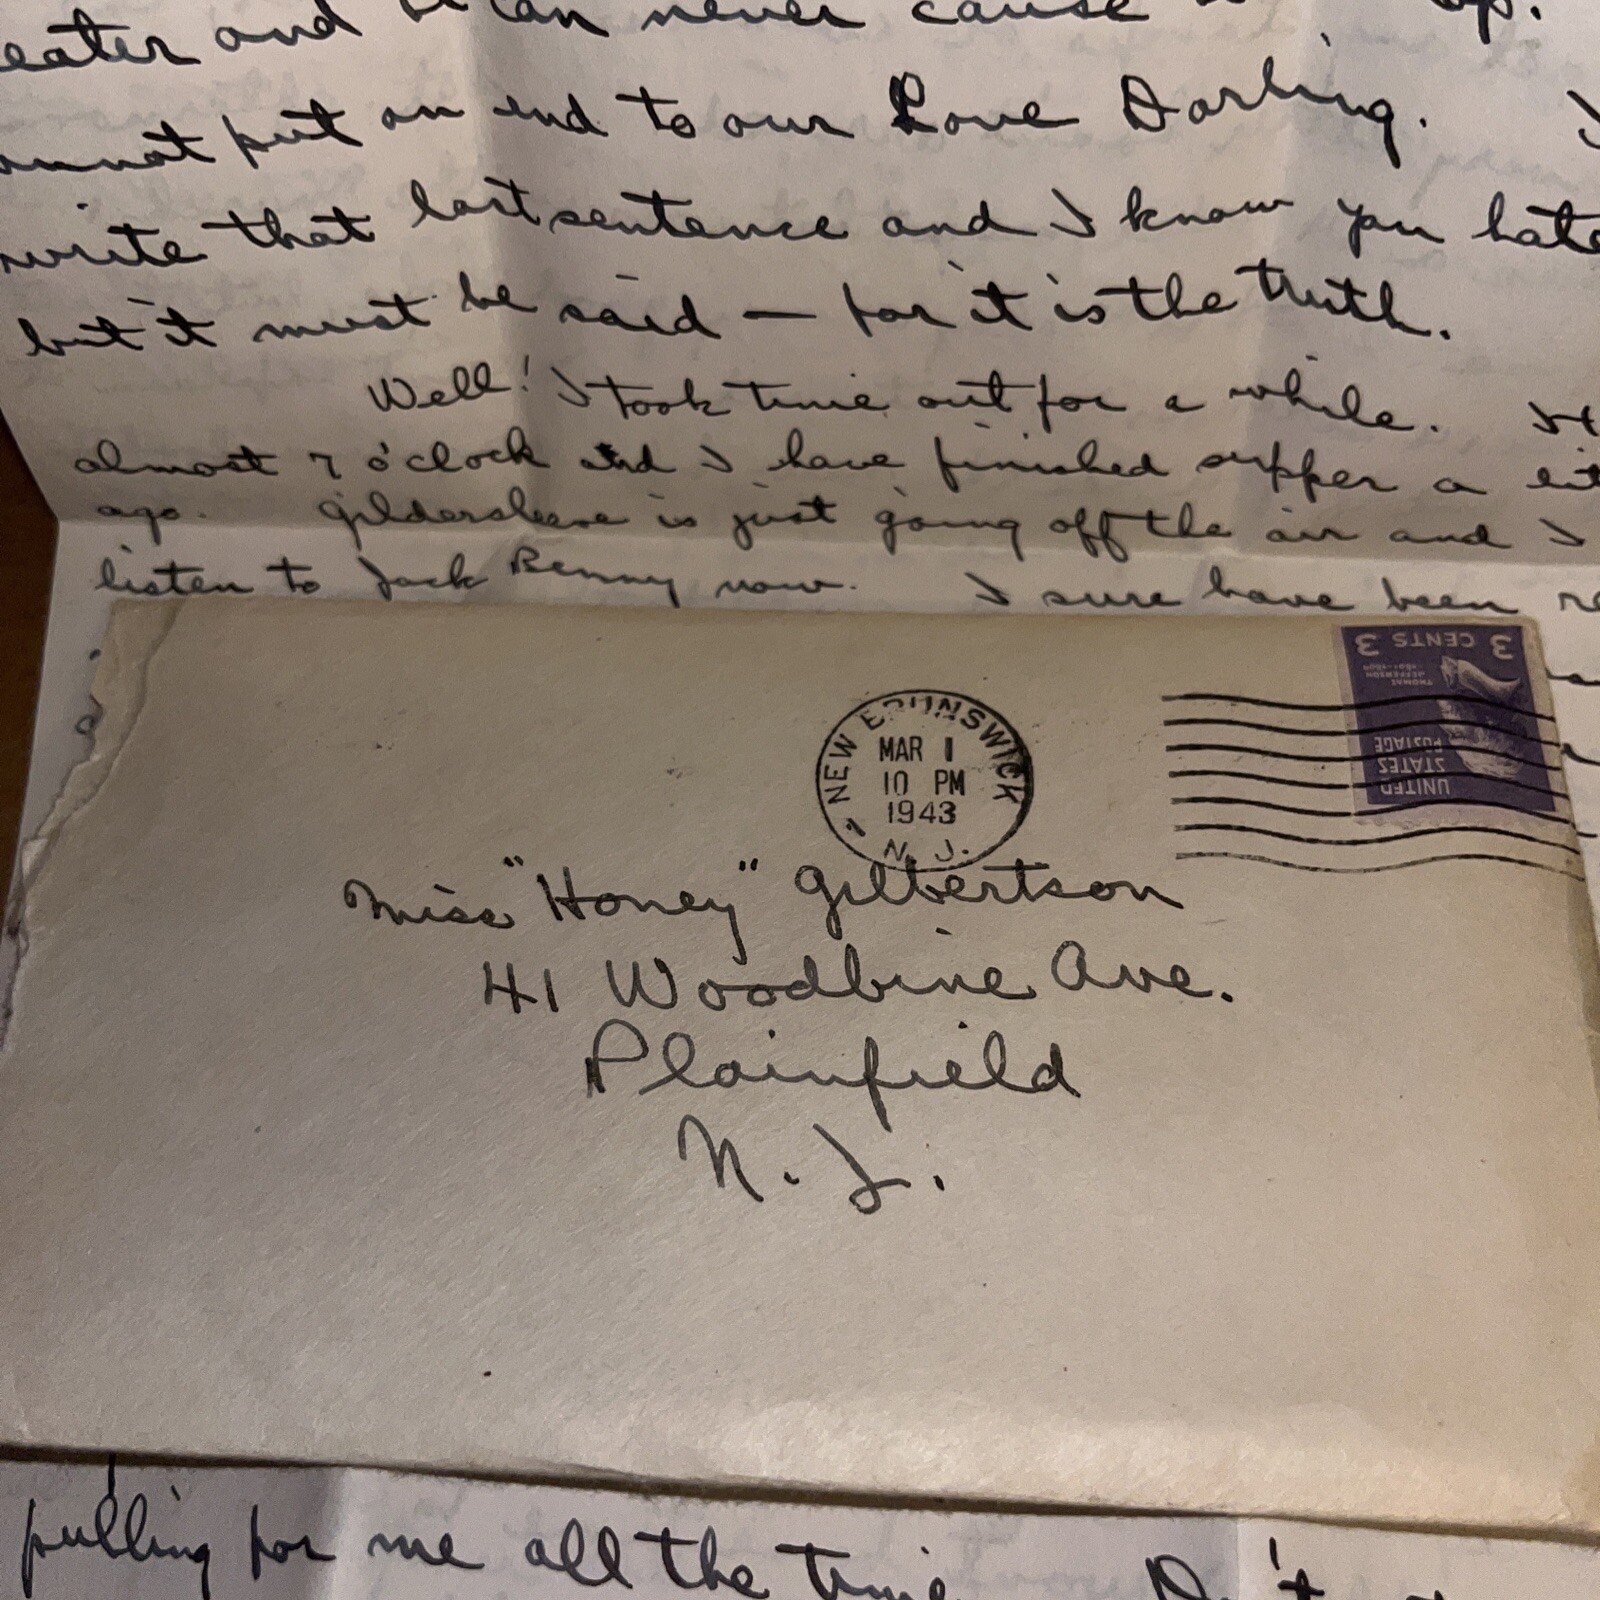 eater and it can never cause
cannot put an end to our Love Darling. I
write that last sentence and I know you hate
but it must be said — for it is the truth.
Well! I took time out for a while. It
almost 7 o'clock and I have finished supper a
ago. Gildersleeve is just going off the air and I
listen to Jack Benny now. I sure have been
3 CENTS 3
THOMAS
JEFFERSON
1801-1809
UNITED
STATES
POSTAGE
NEW BRUNSWICK
MAR 1
10 PM
1943
N. J.
1
Miss "Honey" Gilbertson
41 Woodbine Ave.
Plainfield
N. J.
pulling for me all the time